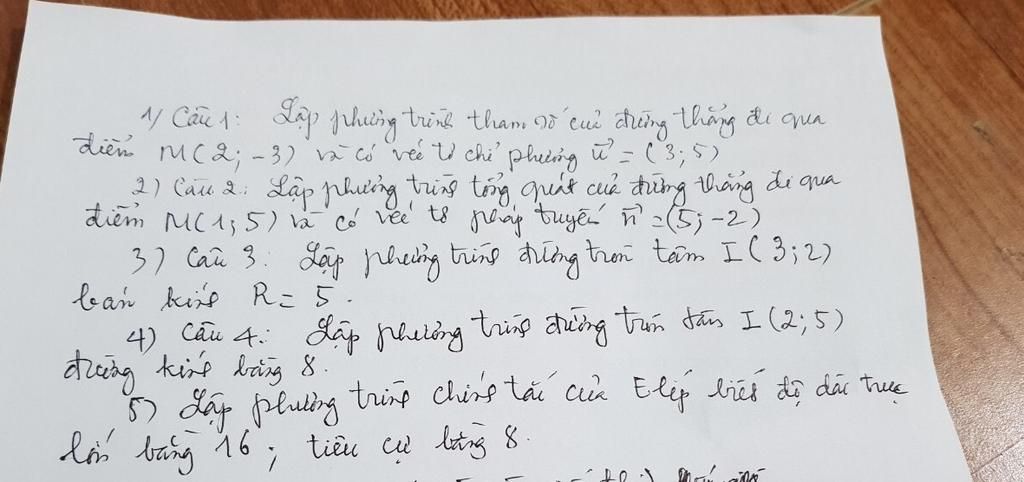 1) Câu 1: Lập phương trình tham số của đường thẳng đi qua
điểm M(2; -3) và có véc tơ chỉ phương u⃗ = (3; 5)
2) Câu 2: Lập phương trình tổng quát của đường thẳng đi qua
điểm M(1; 5) và có véc tơ pháp tuyến n⃗ = (5; -2)
3) Câu 3: Lập phương trình đường tròn tâm I(3; 2)
bán kính R = 5.
4) Câu 4: Lập phương trình đường tròn tâm I(2; 5)
đường kính bằng 8.
5) Lập phương trình chính tắc của Elép biết độ dài trục
lớn bằng 16; tiêu cự bằng 8.